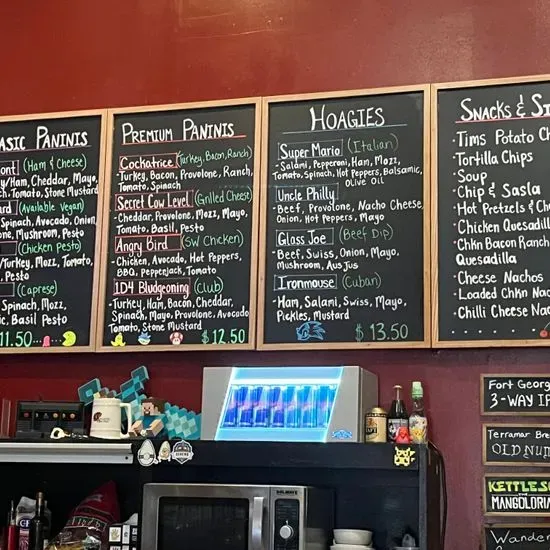 ASIC PANINIS
ont (Ham & Cheese)
y/Ham, Cheddar, Mayo,
h, Tomato, Stone Mustard
rd (Available Vegan)
Spinach, Avocado, Onion,
ne, Mushroom, Pesto
(Chicken Pesto)
/Turkey, Mozz, Tomato,
Pesto
(Caprese)
Spinach, Mozz,
ic, Basil Pesto
11.50
PREMIUM PANINIS
Cockatrice (Turkey, Bacon, Ranch)
-Turkey, Bacon, Provolone, Ranch,
Tomato, Spinach
Secret Cow Level (Grilled Cheese)
-Cheddar, Provolone, Mozz, Mayo,
Tomato, Basil Pesto
Angry Bird (SW Chicken)
-Chicken, Avocado, Hot Peppers,
BBQ, Pepperjack, Tomato
1D4 Bludgeoning (Club)
-Turkey, Ham, Bacon, Cheddar,
Spinach, Mayo, Provolone, Avocado
Tomato, Stone Mustard
$12.50
HOAGIES
Super Mario (Italian)
-Salami, Pepperoni, Ham, Mozz,
Tomato, Spinach, Hot Peppers, Balsamic,
Olive Oil
Uncle Philly
-Beef, Provolone, Nacho Cheese,
Onion, Hot Peppers, Mayo
Glass Joe (Beef Dip)
-Beef, Swiss, Onion, Mayo,
Mushroom, Aus Jus
Ironmouse (Cuban)
-Ham, Salami, Swiss, Mayo,
Pickles, Mustard
$13.50
SNACKS & S
- Tims Potato Ch
- Tortilla Chips
- Soup
- Chip & Sasla
- Hot Pretzels & Ch
- Chicken Quesadil
- Chkn Bacon Ranch
Quesadilla
- Cheese Nachos
- Loaded Chkn Nac
- Chilli Cheese Nac
FORT GEORG
3-WAY IP
Terramar Bre
OLD NUM
KETTLES
MANGOLORIA
Wander